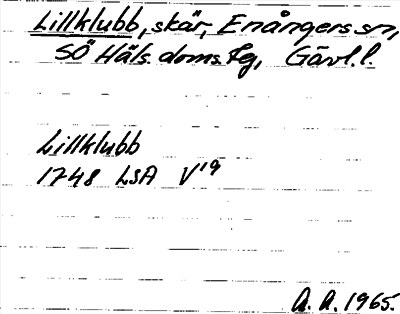 Lillklubb, skär, Enångers sn,
SÖ Häls. doms. fg, Gävl. l.
Lillklubb
1748 LSA V¹⁹
A. A. 1965.